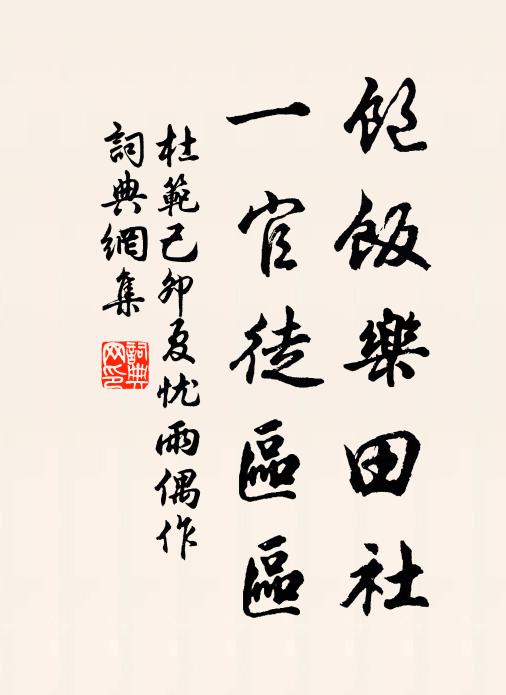 飽飯樂田社
一官徒區區
杜範己卯夏忧雨偶作
詞典網集
詞典網印